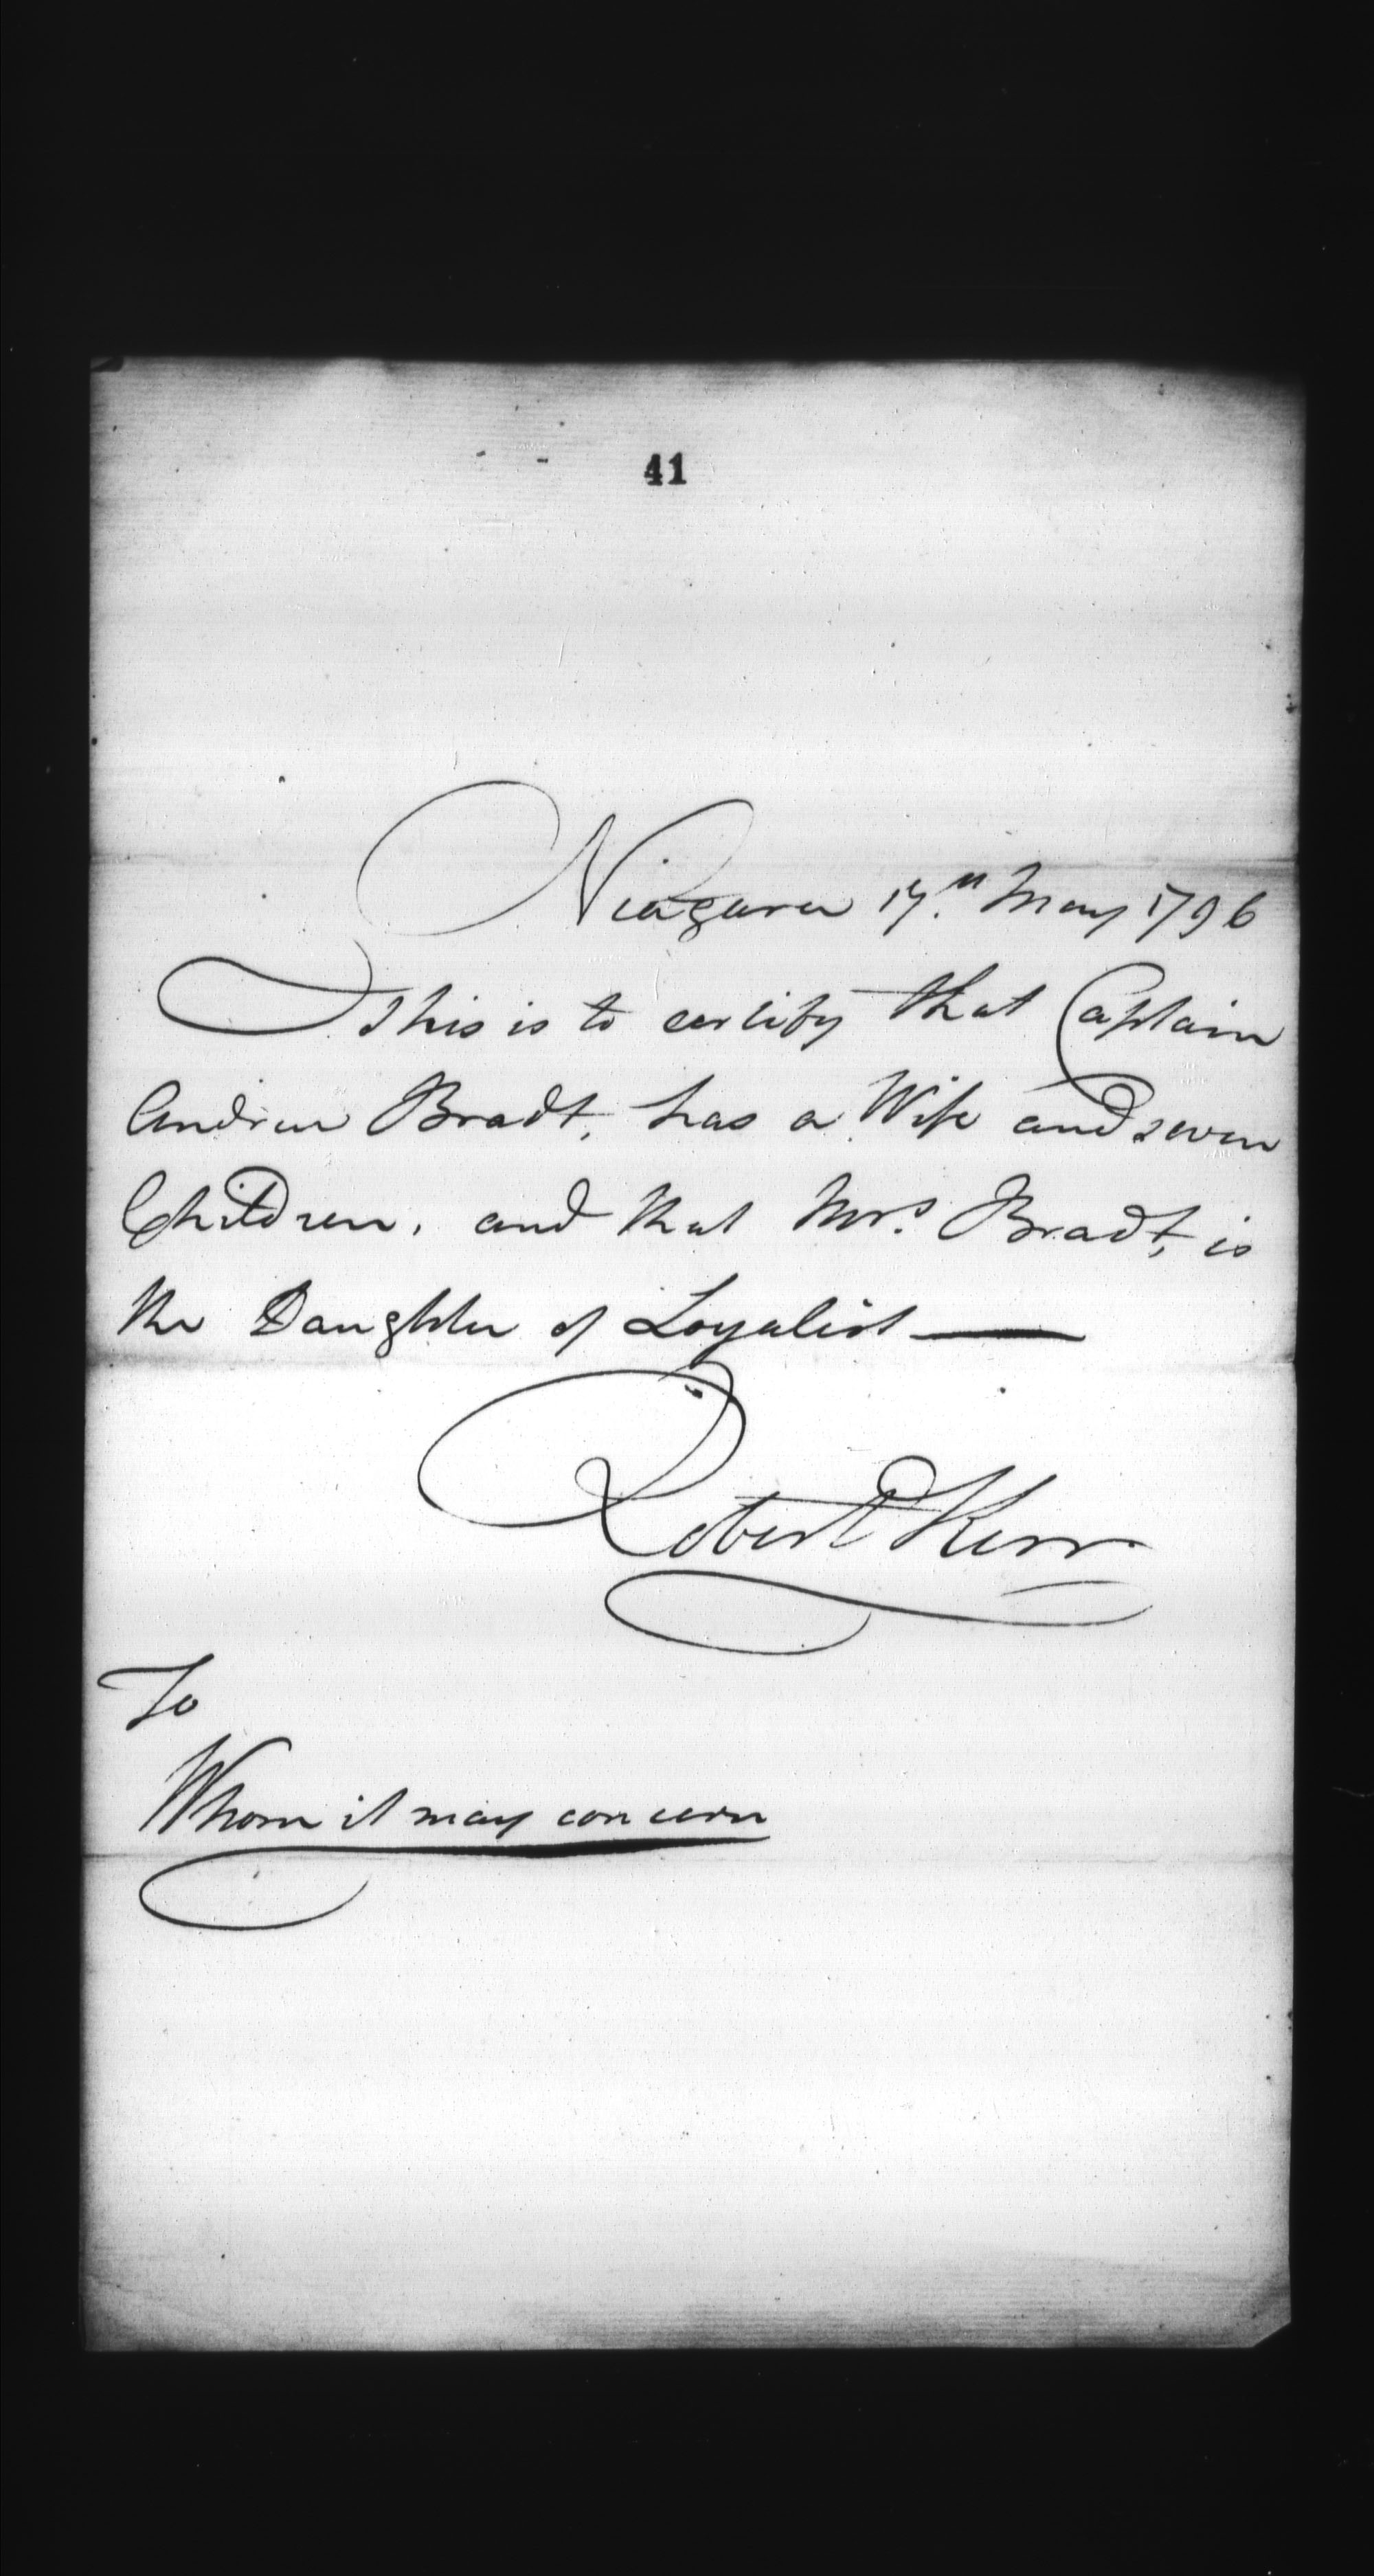 41
Niagara 17th May 1796
This is to certify that Captain
Andrew Bradt, has a Wife and seven
Children, and that Mrs. Bradt, is
the Daughter of Loyalist —
Robert Kerr
To
Whom it may concern